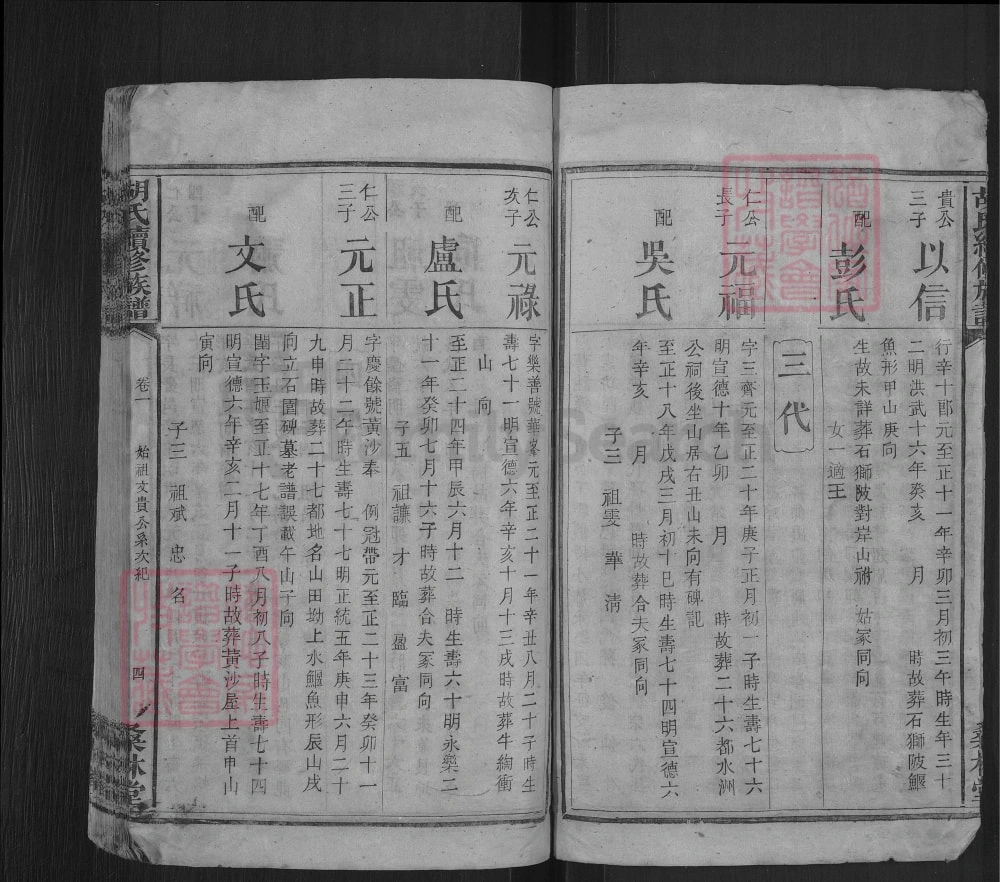 貴公
三子
以信
行辛十郎元至正十一年辛卯三月初三午時生年三十
二明洪武十六年癸亥 月 時故葬石獅陂鰋
魚形甲山庚向
配
彭氏
生故未詳葬石獅陂對岸山祔 姑冢同向
女一適王
三代
仁公
長子
元福
字三齊元至正二十年庚子正月初一子時生壽七十六
明宣德十年乙卯 月 時故葬二十六都水洲
公祠後坐山居右丑山未向有碑記
配
吳氏
至正十八年戊戌三月初十巳時生壽七十四明宣德六
年辛亥 月 時故葬合夫冢同向
子三 祖雯 華 清
仁公
次子
元祿
字樂善號華峯元至正二十一年辛丑八月二十子時生
壽七十一明宣德六年辛亥十月十三戌時故葬牛綯衝
山 向
配
盧氏
至正二十四年甲辰六月十二 時生壽六十明永樂二
十一年癸卯七月十六子時故葬合夫冢同向
子五 祖謙 才 臨 盈 富
仁公
三子
元正
字慶餘號黃沙奉 例冠帶元至正二十三年癸卯十一
月二十二午時生壽七十七明正統五年庚申六月二十
九申時故葬二十七都地名山田坳上水鰋魚形辰山戌
向立石圍碑墓老譜誤載午山子向
配
文氏
閨字玉嫄至正十七年丁酉八月初八子時生壽七十四
明宣德六年辛亥二月十一子時故葬黃沙屋上首申山
寅向
子三 祖斌 忠 名
胡氏續修族譜
卷一
始祖文貴公系次紀
四
桑林堂